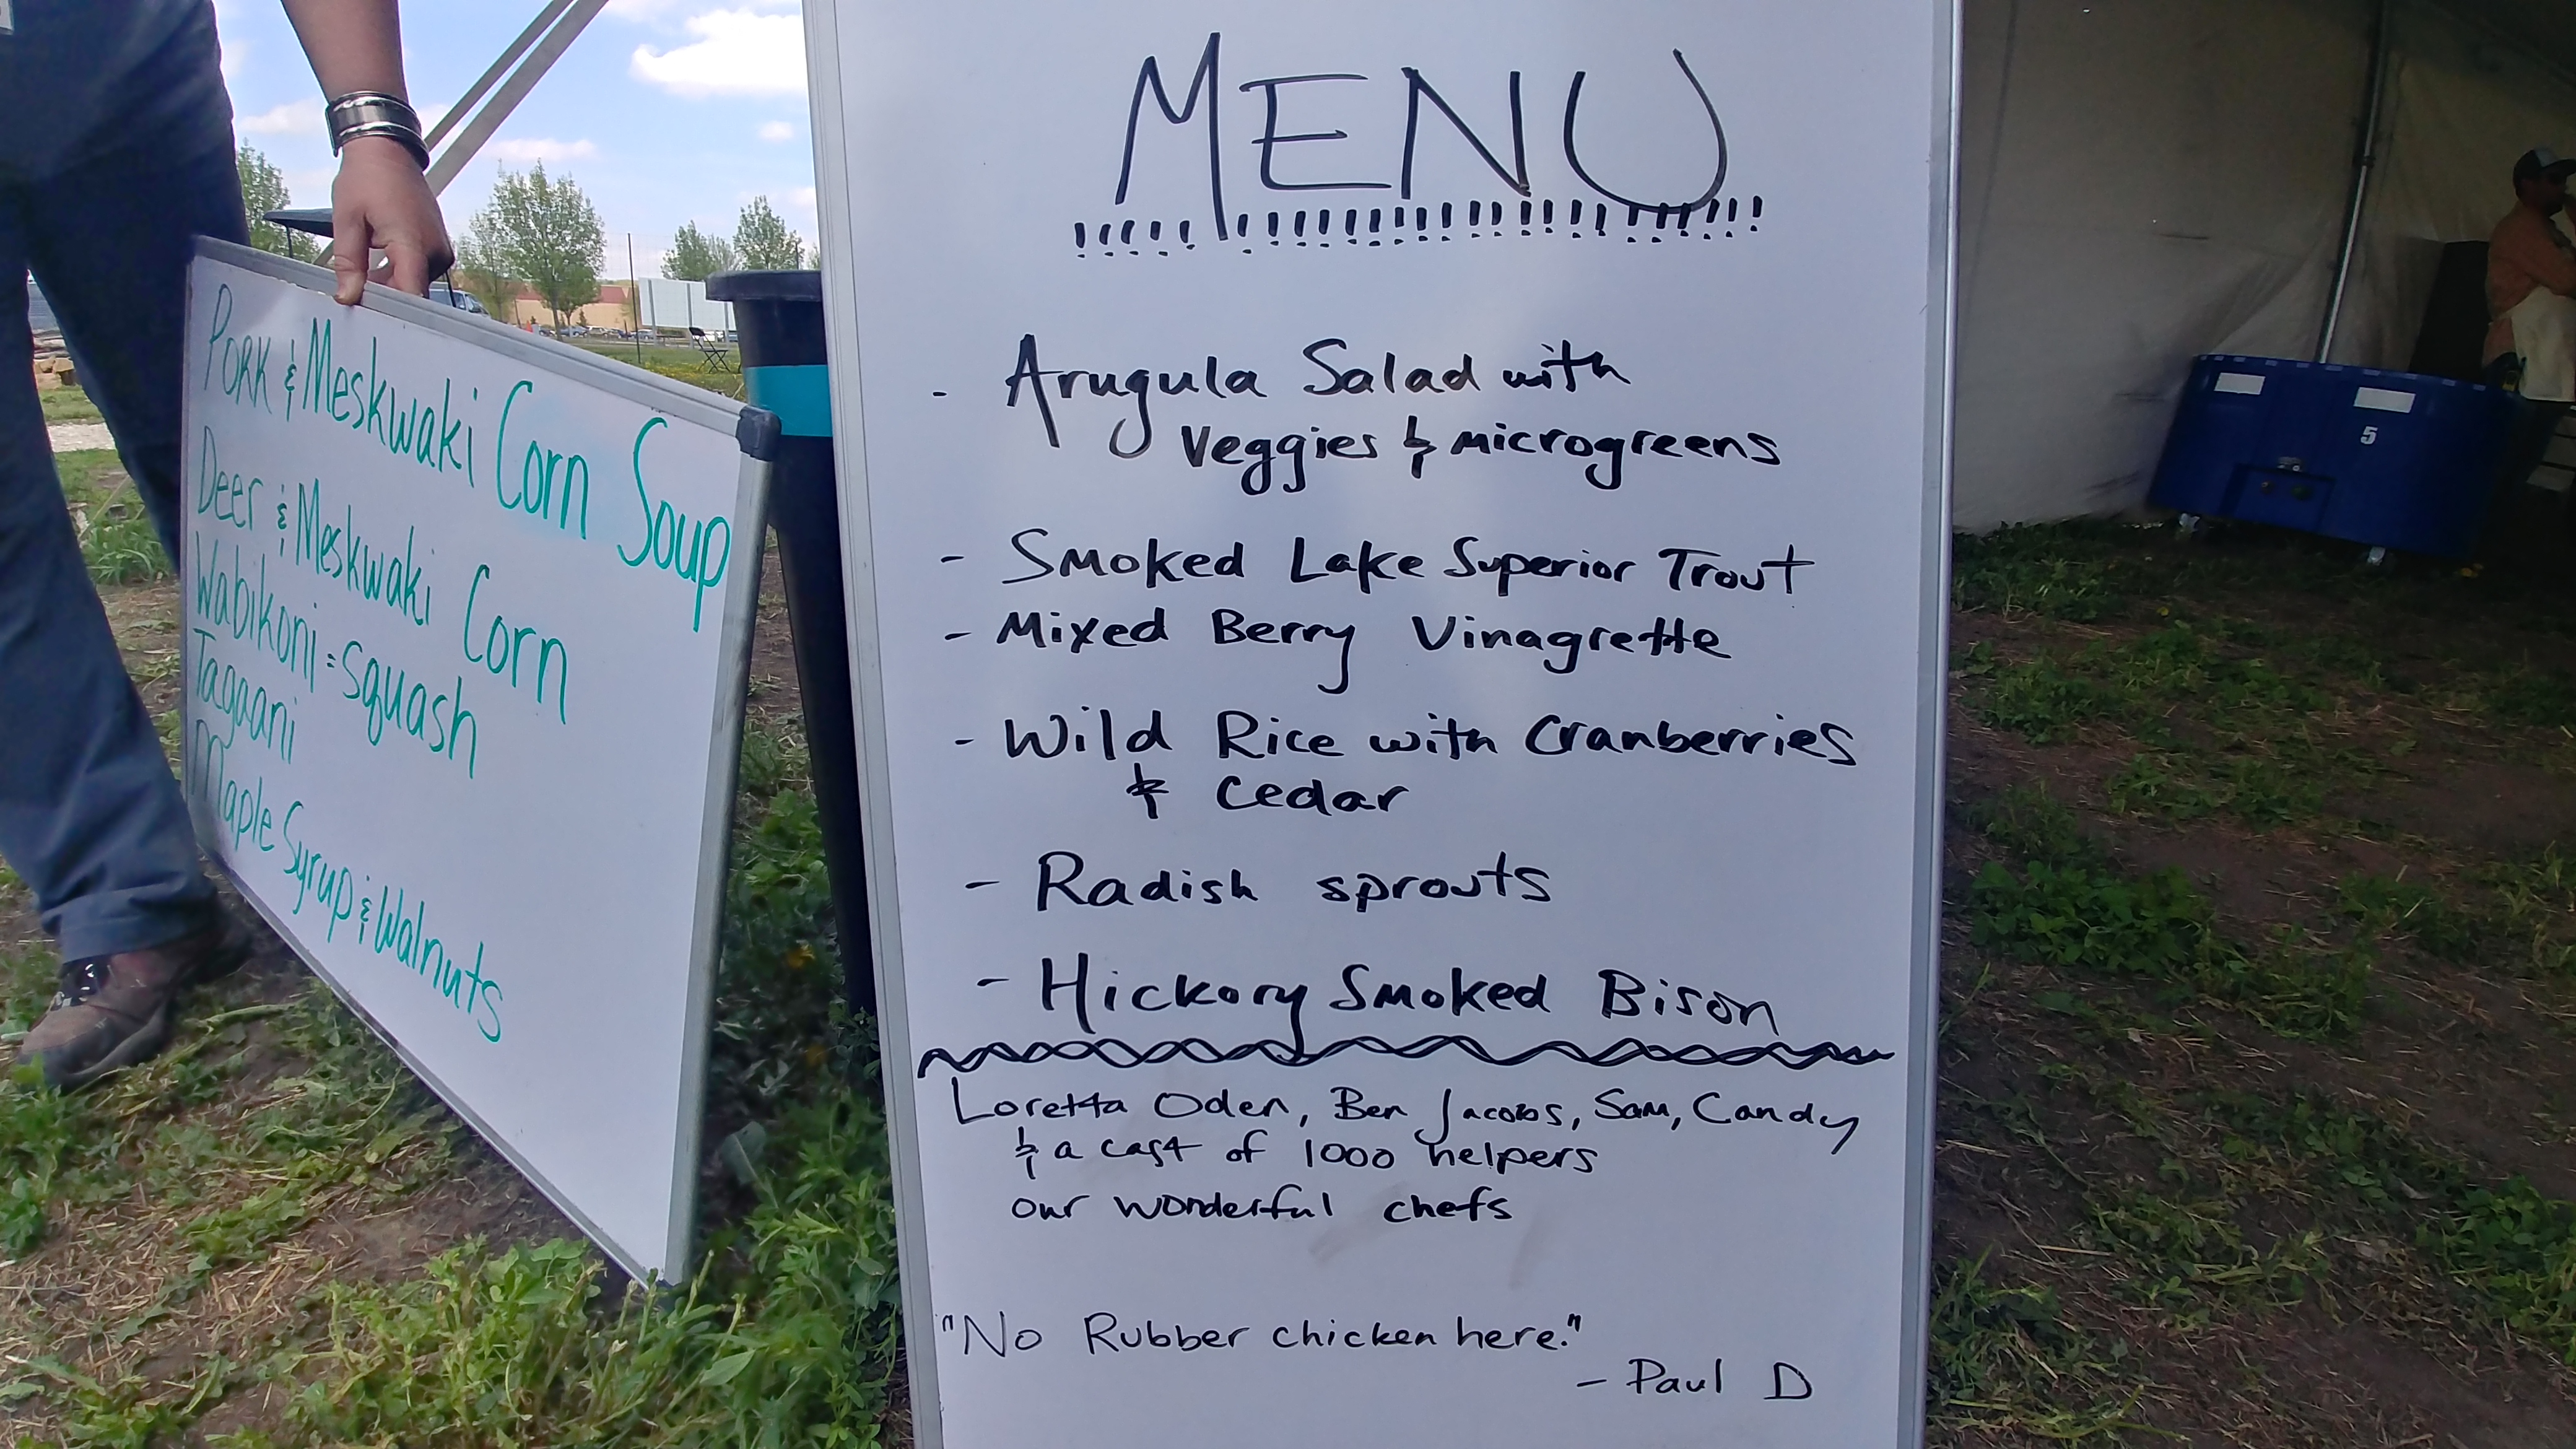 Pork & Meskwaki Corn Soup
Deer & Meskwaki Corn
Wabikoni = squash
Tagaani
Maple Syrup & Walnuts
MENU
!!!!!!!!!!!!!!!!!!!!!!!!!
- Arugula Salad with
Veggies & microgreens
- Smoked Lake Superior Trout
- Mixed Berry Vinagrette
- Wild Rice with Cranberries
& Cedar
- Radish sprouts
- Hickory Smoked Bison
Loretta Oden, Ben Jacobs, Sam, Candy
& a cast of 1000 helpers
our wonderful chefs
"No Rubber chicken here."
- Paul D
5